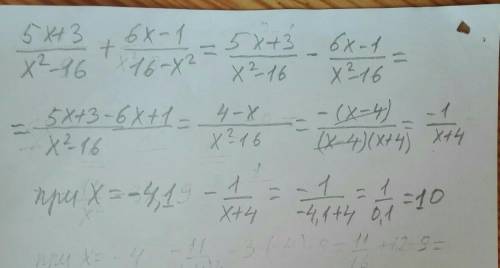 (5x+3)/(x²-16) + (6x-1)/(16-x²) = (5x+3)/(x²-16) - (6x-1)/(x²-16) =
= (5x+3-6x+1)/(x²-16) = (4-x)/(x²-16) = (-(x-4))/((x-4)(x+4)) = (-1)/(x+4)
при x=-4,1 - 1/(x+4) = -1/(-4,1+4) = 1/(0,1) = 10